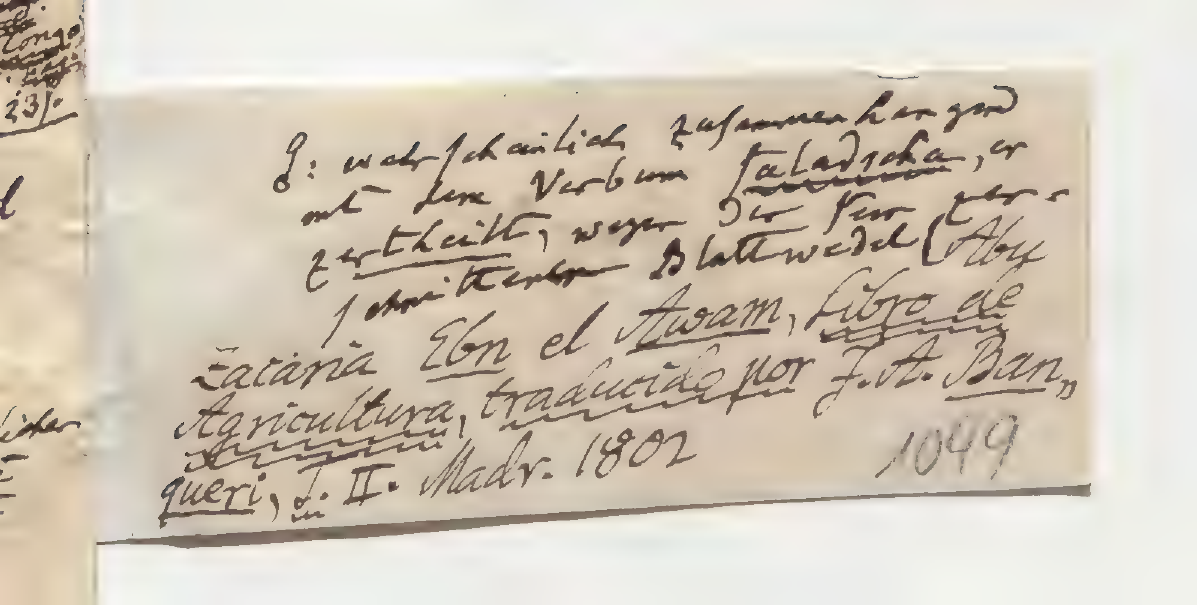 Congo
23).
g: wahrscheinlich zusammenhangend
mit dem Verbum faladscha, er
zertheilt, wegen der fein zer-
schnittenen Blattwedel (Abu
Zacaria Ebn el Awam, Libro de
Agricultura, traducido por J. A. Ban„
queri, T. II. Madr. 1802
1049